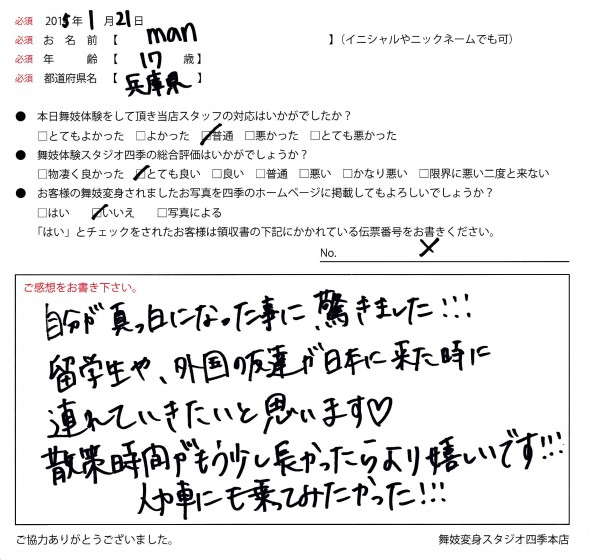 必須 2015年1月21日
必須 お 名 前 【 man 】(イニシャルやニックネームでも可)
必須 年 齢 【 17 歳】
必須 都道府県名 【 兵庫県 】
● 本日舞妓体験をして頂き当店スタッフの対応はいかがでしたか？
□とてもよかった □よかった ☑普通 □悪かった □とても悪かった
● 舞妓体験スタジオ四季の総合評価はいかがでしょうか？
□物凄く良かった ☑とても良い □良い □普通 □悪い □かなり悪い □限界に悪い二度と来ない
● お客様の舞妓変身されましたお写真を四季のホームページに掲載してもよろしいでしょうか？
□はい ☑いいえ □写真による
「はい」とチェックをされたお客様は領収書の下記にかかれている伝票番号をお書きください。
No. ×
ご感想をお書き下さい。
自分が真っ白になった事に、驚きました!!!
留学生や、外国の友達が日本に来た時に
連れていきたいと思います♡
散策時間がもう少し長かったらより嬉しいです!!!
人力車にも乗ってみたかった!!!
ご協力ありがとうございました。 舞妓変身スタジオ四季本店